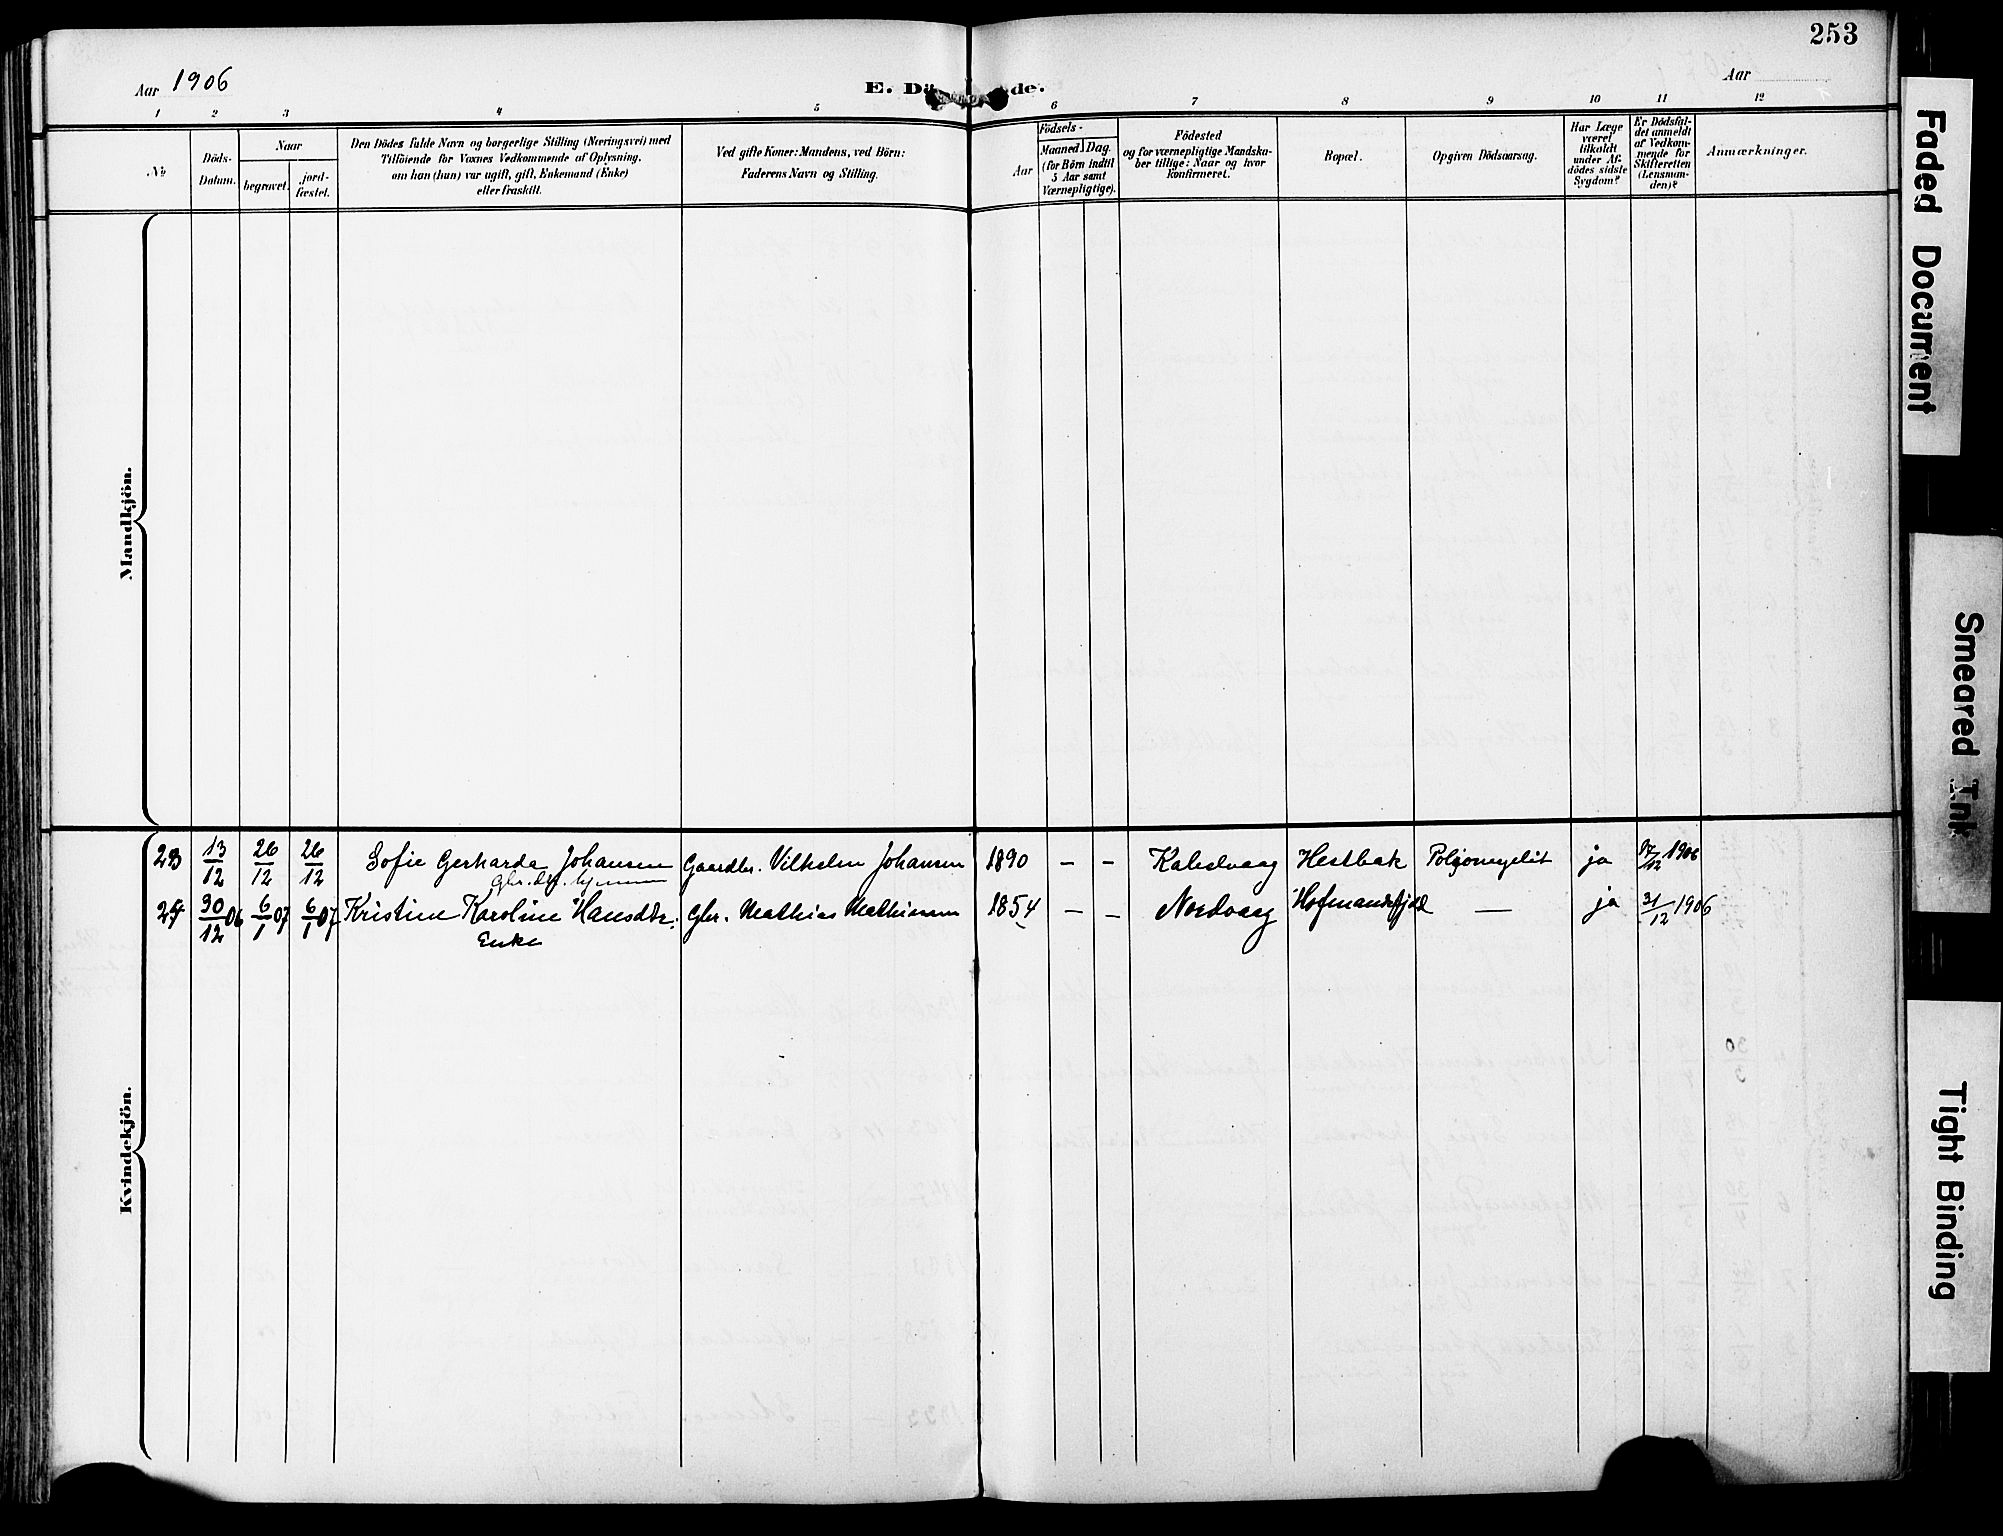 253
Aar 1906
E. Dö de.
Aar
1 2 3 4 5 6 7 8 9 10 11 12
No
Döds-
Datum.
Naar
begravet.
jord-
fæstet.
Den Dödes fulde Navn og borgerlige Stilling (Næringsvei) med
Tilföiende for Voxnes Vedkommende af Oplysning,
om han (hun) var ugift, gift, Enkemand (Enke)
eller fraskilt.
Ved gifte Koner: Mandens, ved Börn:
Faderens Navn og Stilling.
Födsels-
Aar
Maaned. Dag.
(for Börn indtil
5 Aar samt
Værnepligtige).
Födested
og for værnepligtige Mandska-
ber tillige: Naar og hvor
konfirmeret.
Bopæl.
Opgiven Dödsaarsag.
Har Læge
været
tilkaldt
under Af-
dödes sidste
Sygdom?
Er Dödsfal-
det anmeldt
af Vedkom-
mende for
Skifteretten
(Lensman-
den)?
Anmærkninger.
Mandkjön.
Kvindekjön.
23 13/12 26/12 26/12 Sofie Gerharda Johansen Gaardbr. Vilhelm Johansen 1890 – – Kalsvaag Hestbak ja /12 1906
Gbr. dtr. hjemme
24 30/12 06 6/1 07 6/1 07 Kristine Karoline Hansdtr. Gbr. Mathias Mathiassen 1854 – – Nordvaag Hofmandsfjeld — ja 31/12 1906
Enke
Faded Document
Smeared Ink
Tight Binding